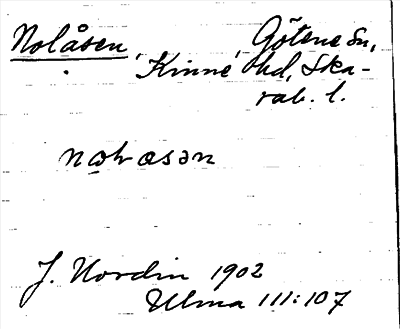 Nolåsen Götene sn,
Kinne hd, Ska-
rab. l.
J. Nordin 1902
Ulma 111:107